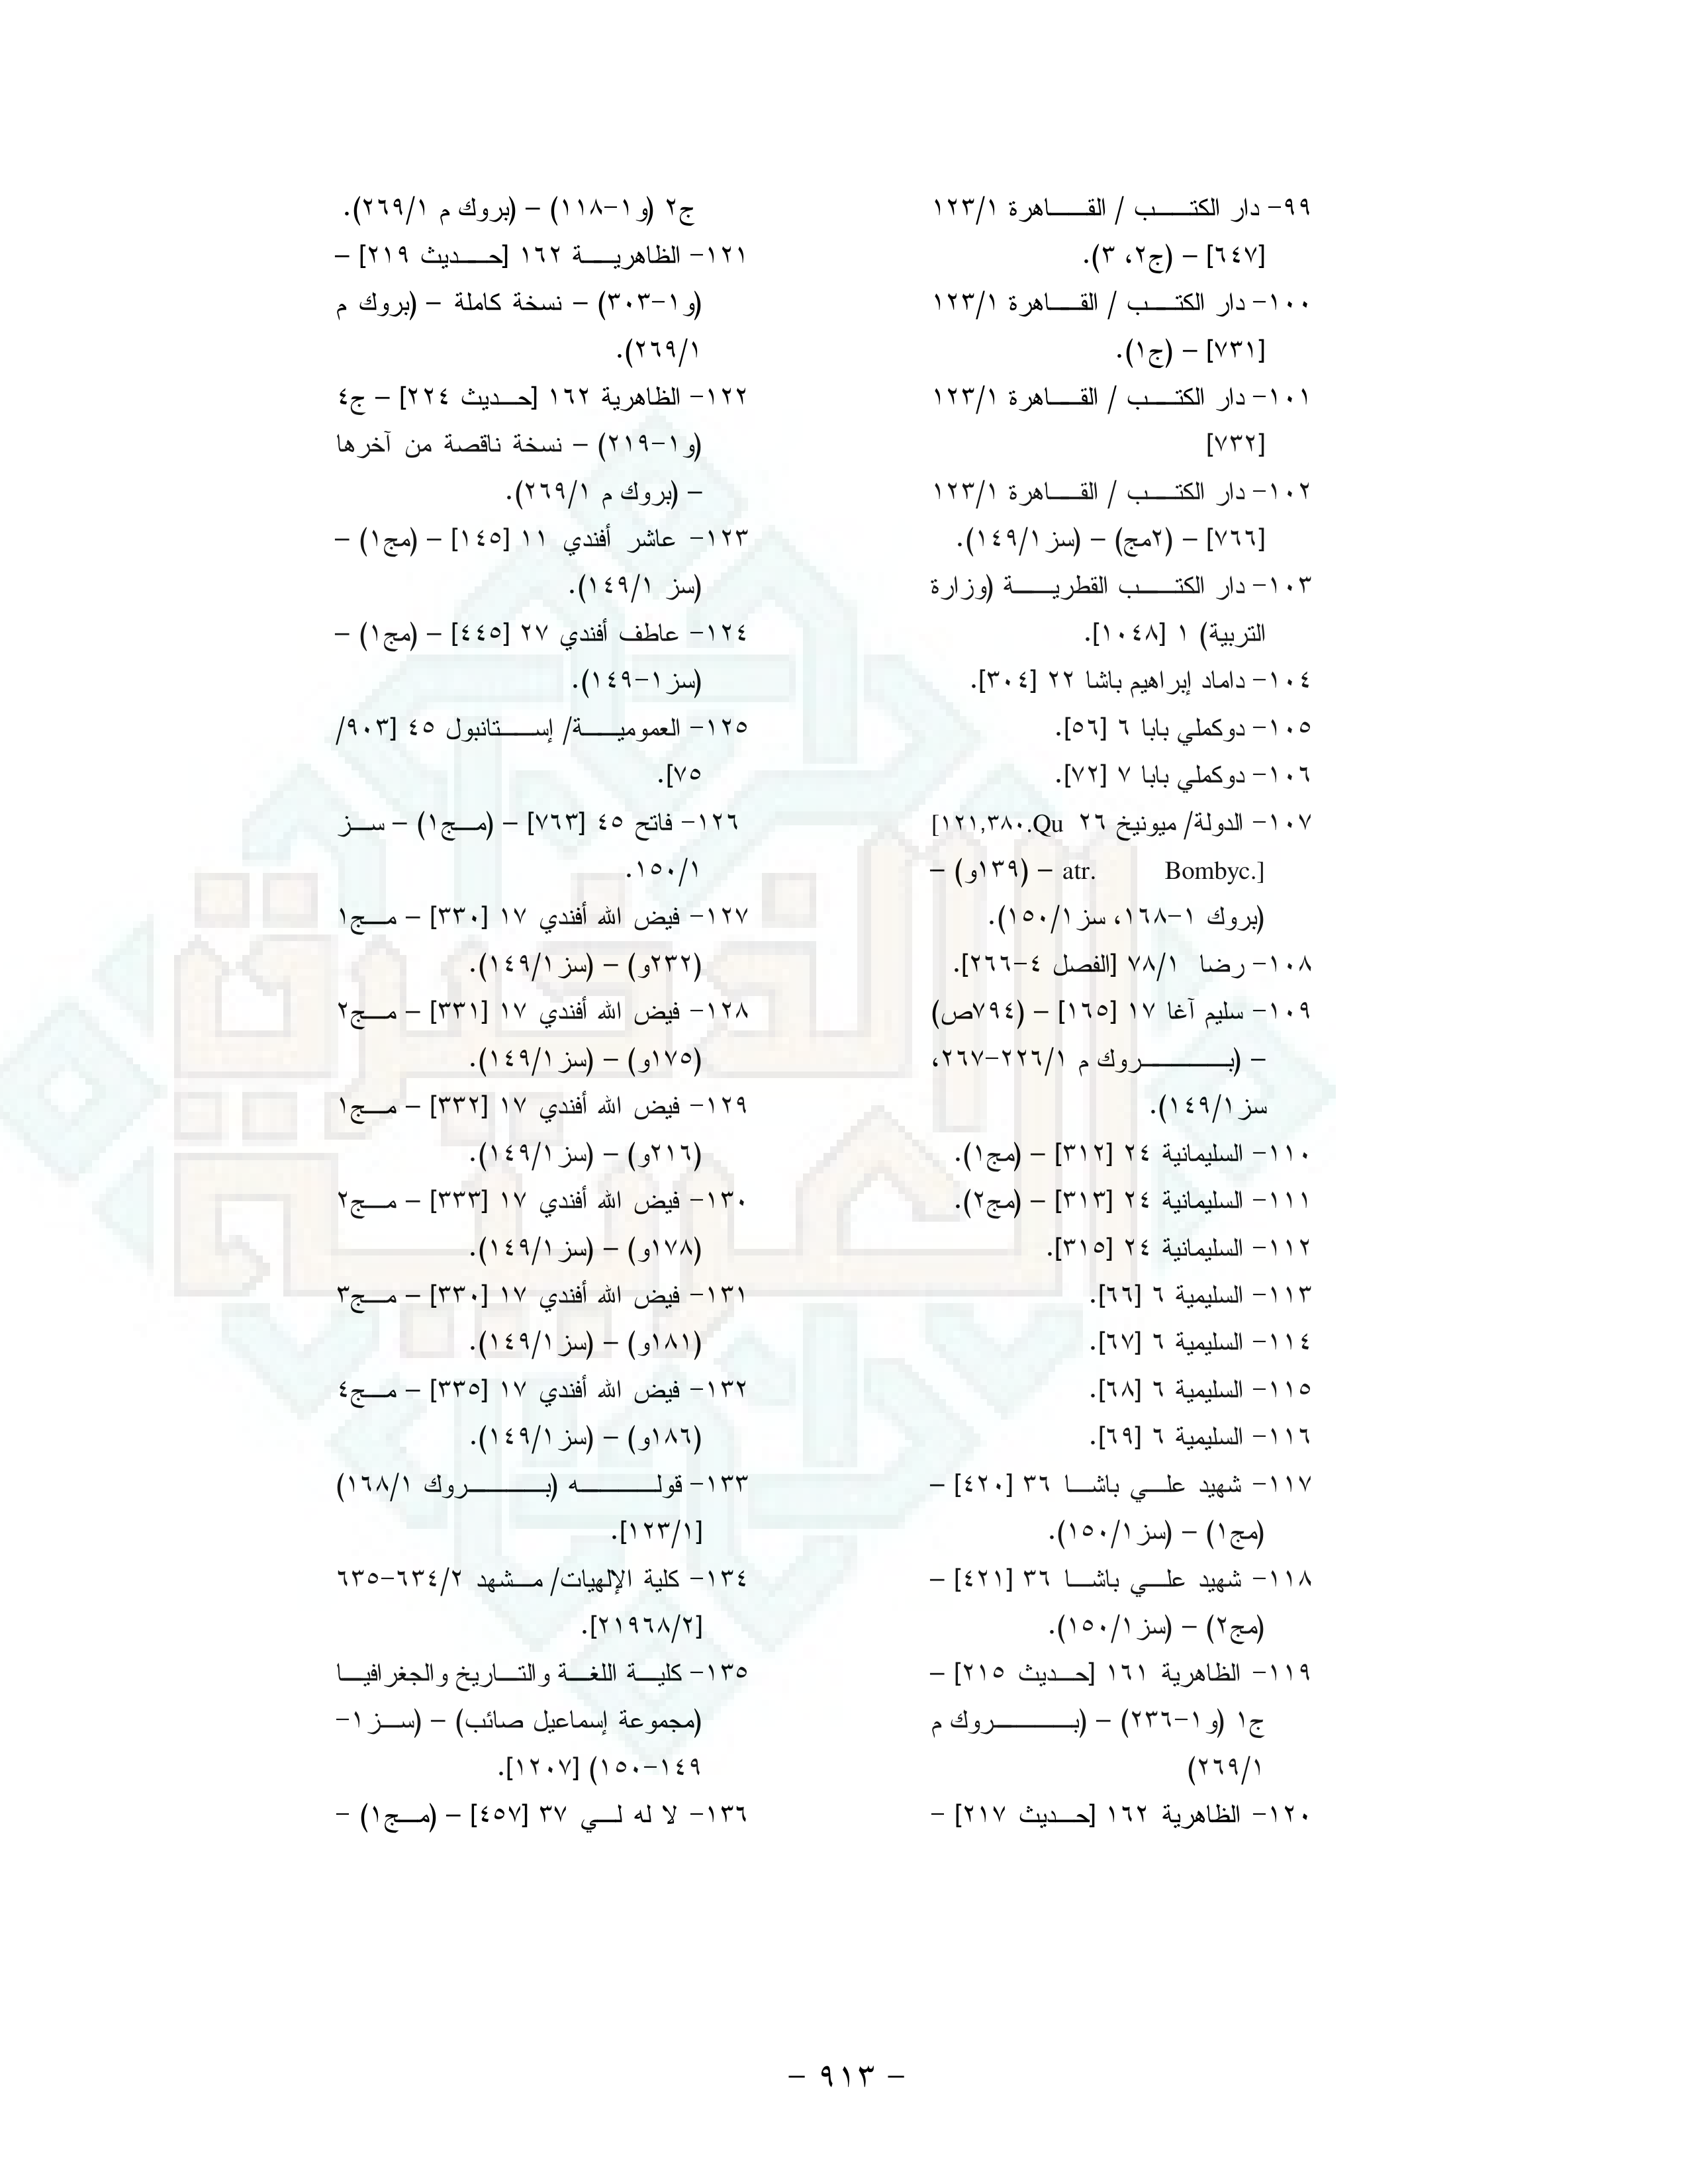 ٩٩- دار الكتب / القاهرة ١٢٣/١
[٦٤٧] – (ج٢، ٣).
١٠٠- دار الكتب / القاهرة ١٢٣/١
[٧٣١] – (ج١).
١٠١- دار الكتب / القاهرة ١٢٣/١
[٧٣٢]
١٠٢- دار الكتب / القاهرة ١٢٣/١
[٧٦٦] – (٢مج) – (سز١٤٩/١).
١٠٣- دار الكتب القطرية (وزارة
التربية) ١ [١٠٤٨].
١٠٤- داماد إبراهيم باشا ٢٢ [٣٠٤].
١٠٥- دوكملي بابا ٦ [٥٦].
١٠٦- دوكملي بابا ٧ [٧٢].
١٠٧- الدولة/ ميونيخ ٢٦ [١٢١,٣٨٠.Qu
atr. Bombyc.] – (١٣٩و) –
(بروك ١-١٦٨، سز١٥٠/١).
١٠٨- رضا ٧٨/١ [الفصل ٤-٢٦٦].
١٠٩- سليم آغا ١٧ [١٦٥] – (٧٩٤ص)
– (بروك م ٢٢٦/١-٢٦٧،
سز١٤٩/١).
١١٠- السليمانية ٢٤ [٣١٢] – (مج١).
١١١- السليمانية ٢٤ [٣١٣] – (مج٢).
١١٢- السليمانية ٢٤ [٣١٥].
١١٣- السليمية ٦ [٦٦].
١١٤- السليمية ٦ [٦٧].
١١٥- السليمية ٦ [٦٨].
١١٦- السليمية ٦ [٦٩].
١١٧- شهيد علي باشا ٣٦ [٤٢٠] –
(مج١) – (سز١٥٠/١).
١١٨- شهيد علي باشا ٣٦ [٤٢١] –
(مج٢) – (سز١٥٠/١).
١١٩- الظاهرية ١٦١ [حديث ٢١٥] –
ج١ (و١-٢٣٦) – (بروك م
٢٦٩/١)
١٢٠- الظاهرية ١٦٢ [حديث ٢١٧] –
ج٢ (و١-١١٨) – (بروك م ٢٦٩/١).
١٢١- الظاهرية ١٦٢ [حديث ٢١٩] –
(و١-٣٠٣) – نسخة كاملة – (بروك م
٢٦٩/١).
١٢٢- الظاهرية ١٦٢ [حديث ٢٢٤] – ج٤
(و١-٢١٩) – نسخة ناقصة من آخرها
– (بروك م ٢٦٩/١).
١٢٣- عاشر أفندي ١١ [١٤٥] – (مج١) –
(سز ١٤٩/١).
١٢٤- عاطف أفندي ٢٧ [٤٤٥] – (مج١) –
(سز١-١٤٩).
١٢٥- العمومية/ إستانبول ٤٥ [٩٠٣/
٧٥].
١٢٦- فاتح ٤٥ [٧٦٣] – (مج١) – سز
١٥٠/١.
١٢٧- فيض الله أفندي ١٧ [٣٣٠] – مج١
(٢٣٢و) – (سز١٤٩/١).
١٢٨- فيض الله أفندي ١٧ [٣٣١] – مج٢
(١٧٥و) – (سز١٤٩/١).
١٢٩- فيض الله أفندي ١٧ [٣٣٢] – مج١
(٢١٦و) – (سز١٤٩/١).
١٣٠- فيض الله أفندي ١٧ [٣٣٣] – مج٢
(١٧٨و) – (سز١٤٩/١).
١٣١- فيض الله أفندي ١٧ [٣٣٠] – مج٣
(١٨١و) – (سز١٤٩/١).
١٣٢- فيض الله أفندي ١٧ [٣٣٥] – مج٤
(١٨٦و) – (سز١٤٩/١).
١٣٣- قوله (بروك ١٦٨/١)
[١٢٣/١].
١٣٤- كلية الإلهيات/ مشهد ٦٣٤/٢-٦٣٥
[٢١٩٦٨/٢].
١٣٥- كلية اللغة والتاريخ والجغرافيا
(مجموعة إسماعيل صائب) – (سز١-
١٤٩-١٥٠) [١٢٠٧].
١٣٦- لا له لي ٣٧ [٤٥٧] – (مج١) -
– ٩١٣ –
الذخيرة
العربية